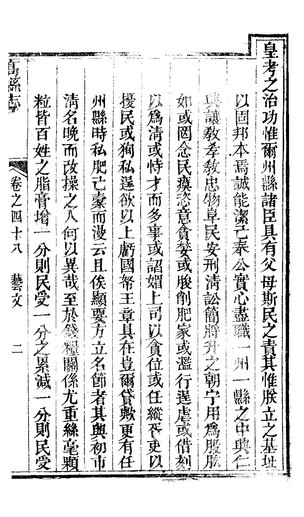 皇考之治功惟爾州縣諸臣具有父母斯民之責其惟朕立之基址
以固邦本焉誠能潔己奉公實心盡職一州一縣之中興仁
興讓教孝教忠物阜民安刑清訟簡將升之朝宁用為股肱
如或罔念民瘼恣意貪婪或朘削肥家或濫行逞虐或借刻
以為清或恃才而多事或諂媚上司以貪位或任縱胥吏以
擾民或狥私逞欲以上虧國帑王章具在豈爾貸歟更有任
州縣時私肥己橐而漫云且俟顯要方立名節者其與初市
清名晚而改操之人何以異哉至於錢糧關係尤重絲毫顆
粒皆百姓之脂膏增一分則民受一分之累減一分則民受
縣志
卷之四十八 藝文 二